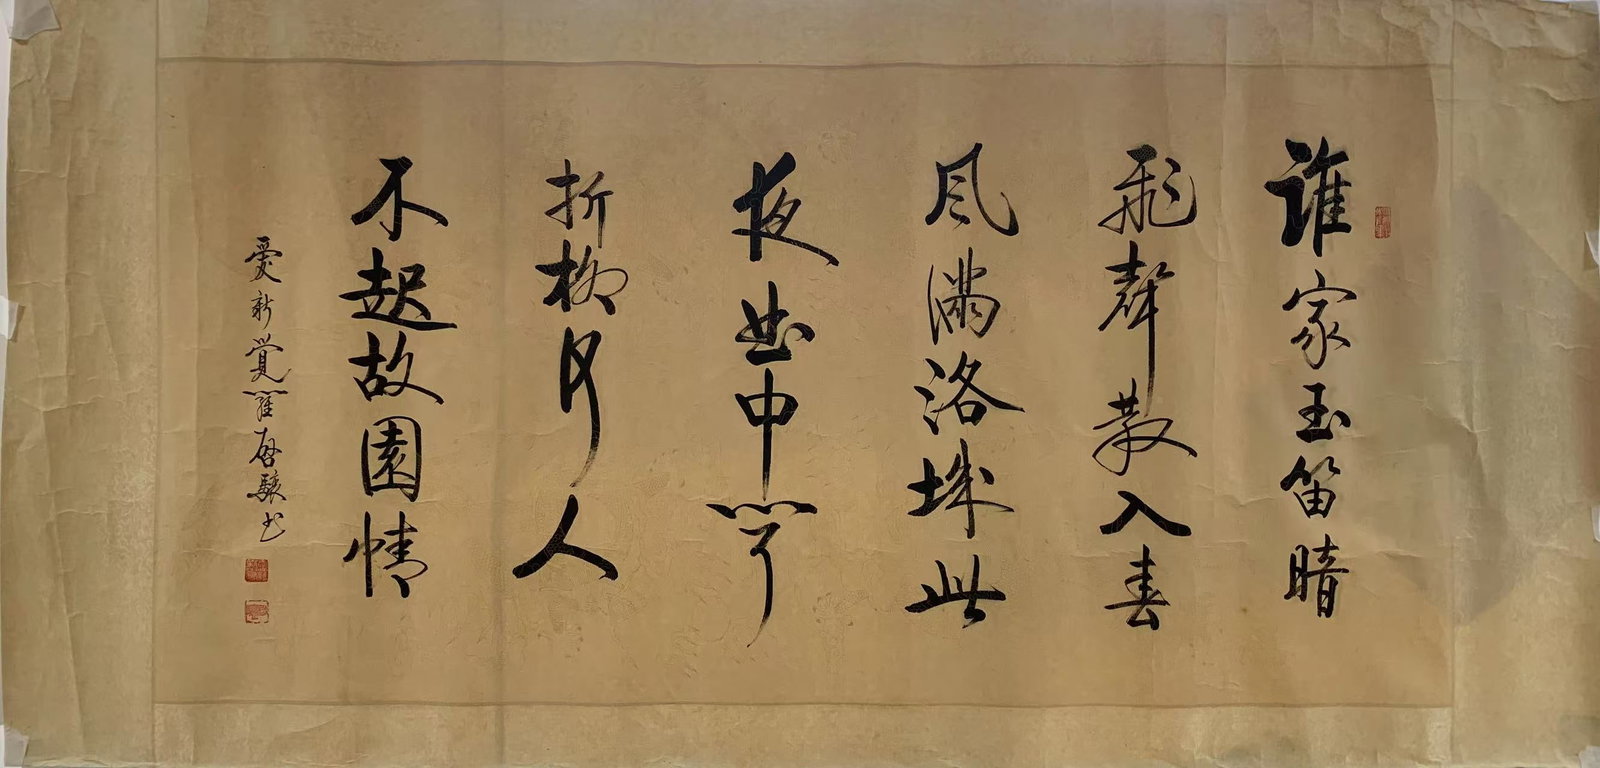 誰家玉笛暗
飛聲散入春
风滿洛城此
夜曲中聞
折柳何人
不起故園情
愛新覺羅啓驤书